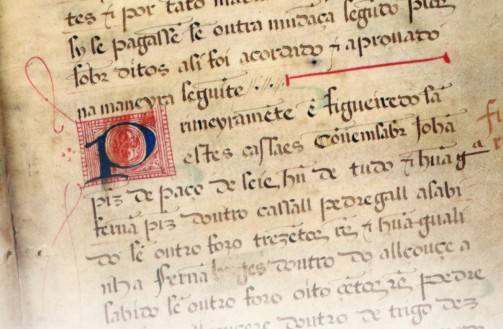 tes ⁊ por tãto
sy se pagassẽ se outra mudãça segũdo
sobr ditos asi foi acordado ⁊ aprouado
na maneyra seguĩte
Primeyramẽte ẽ figueiredo sã
estes cassaes Cõuemsabr Johã
piz de paço de seie, hũ de tudo ⁊ hũa
fernã piz doutro cassall pedregall asabi
do sẽ outro foro trezẽtos rẽ ⁊ hũa guali
nha fernã doutro do allcouçe a
sabido sẽ outro foro oito çẽtos rẽ pedre
doutro de trigo dez